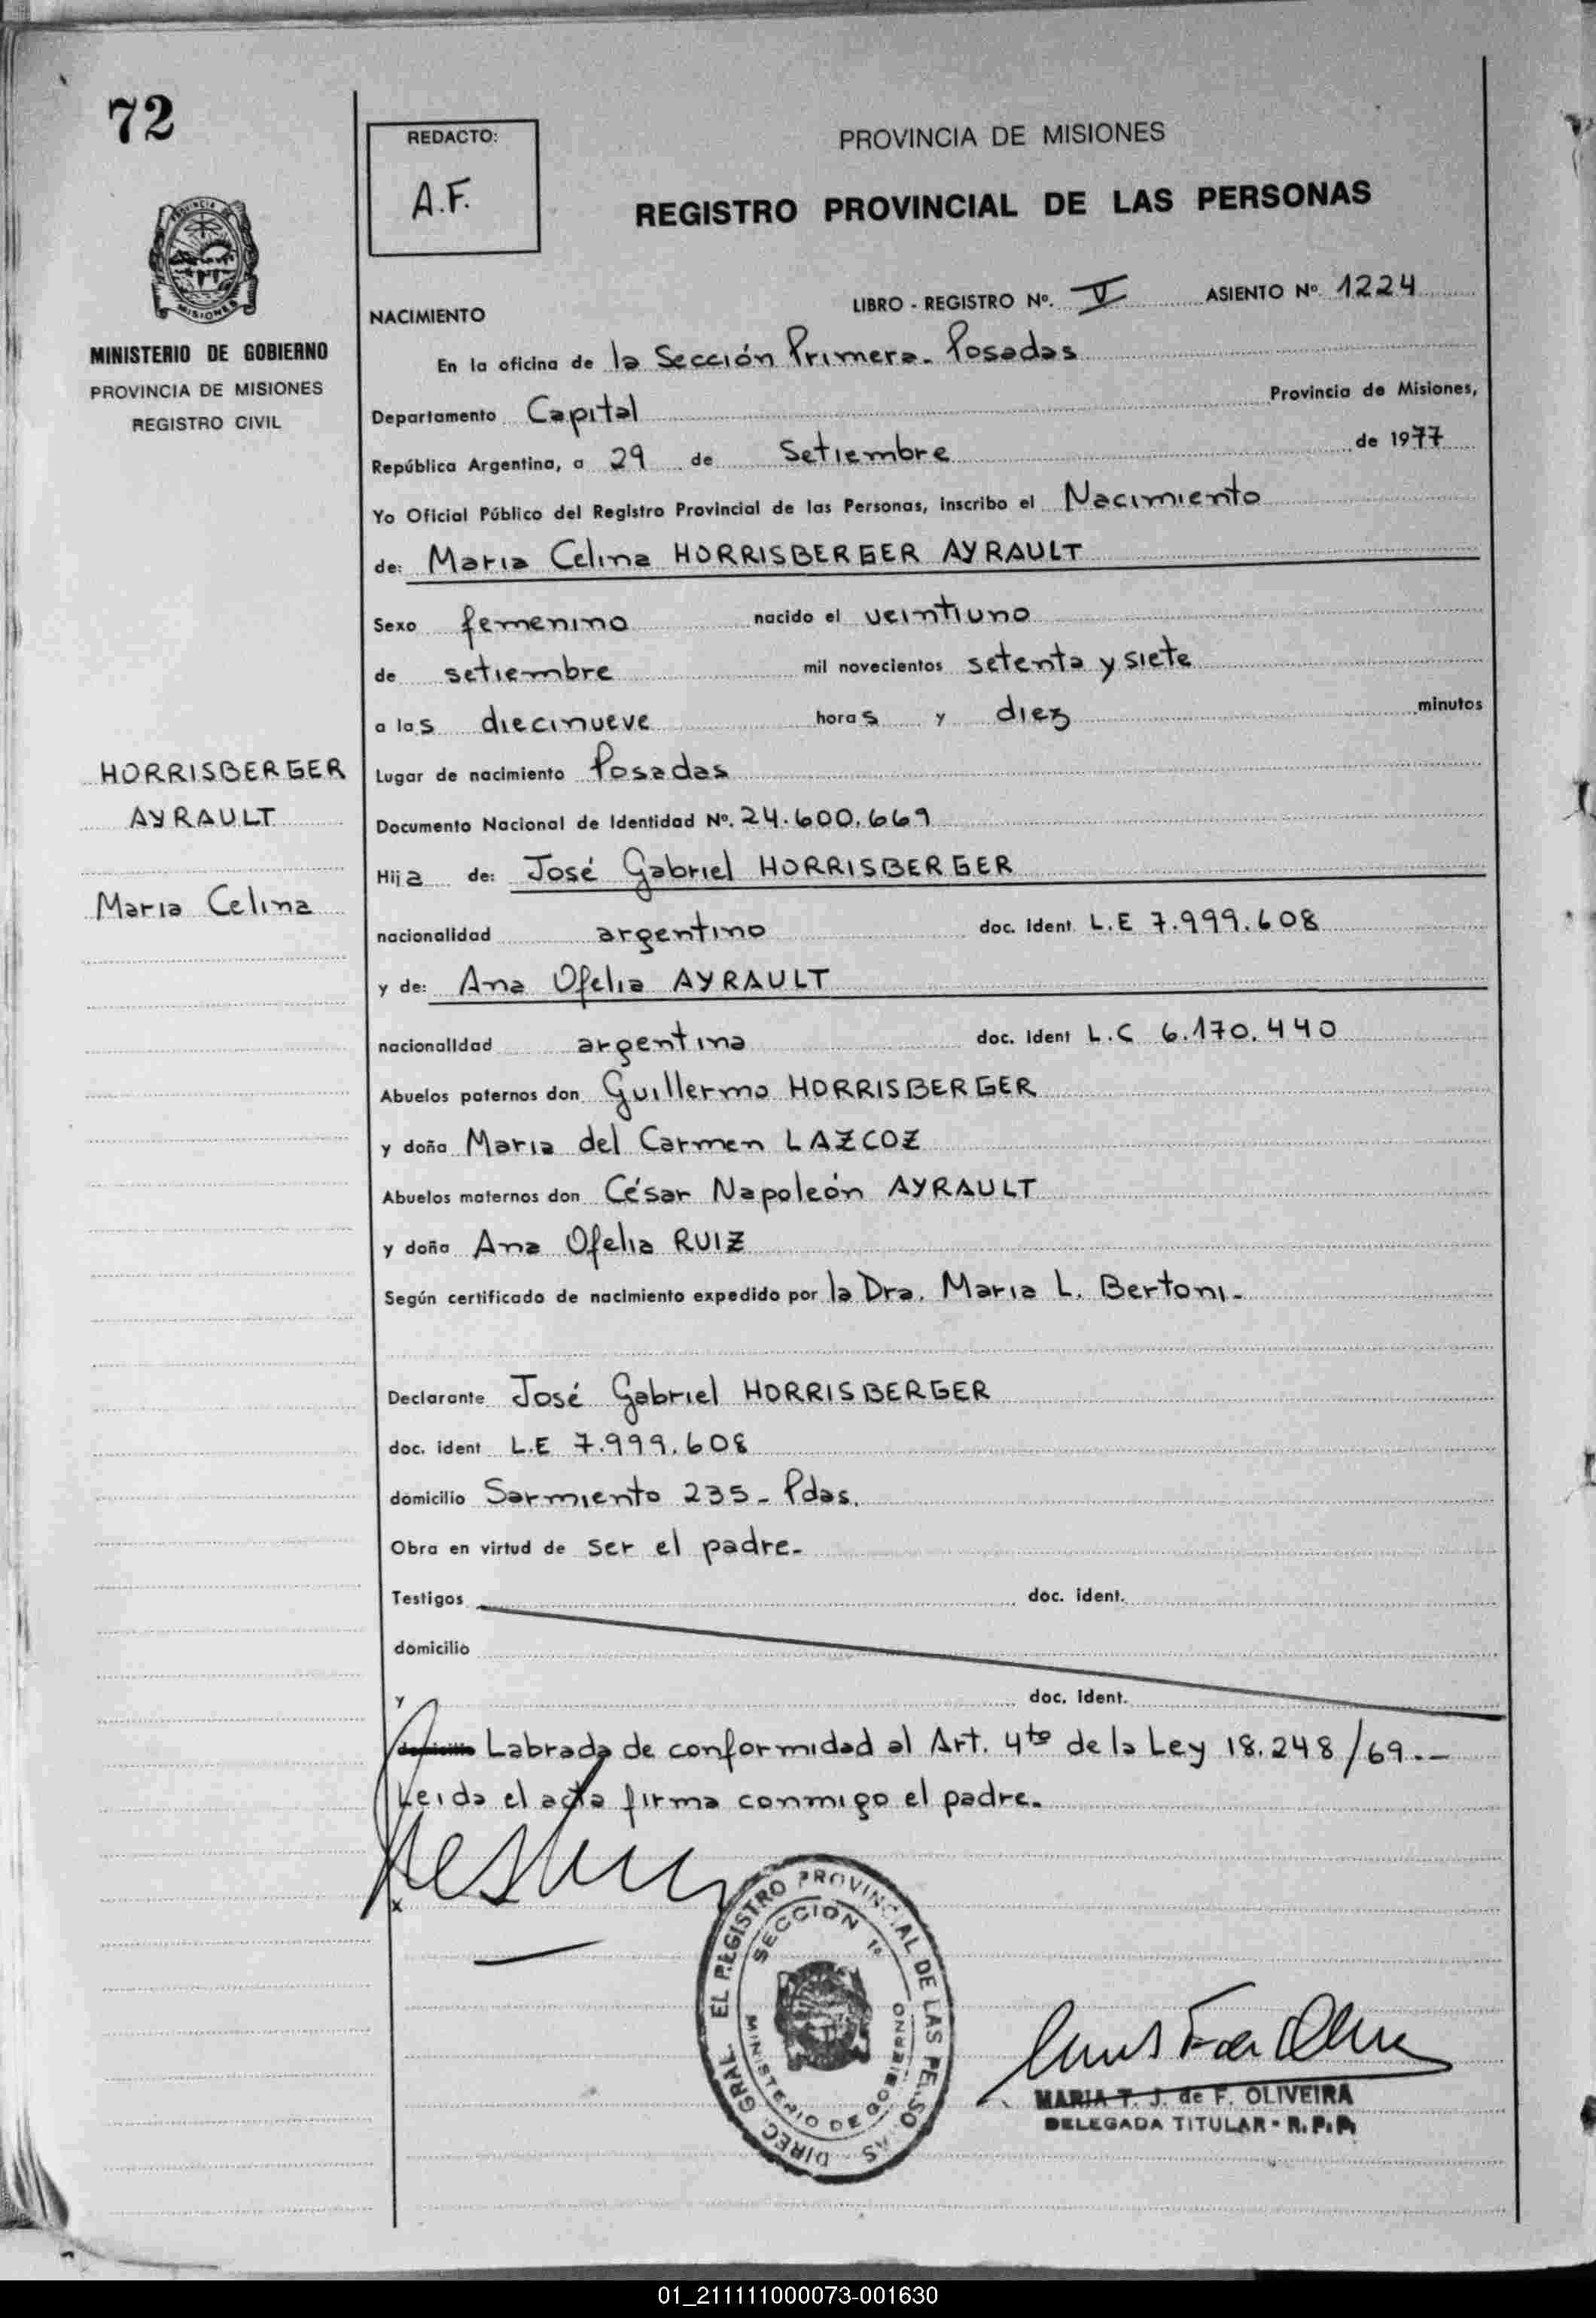 72
REDACTO:
A.F.
PROVINCIA DE MISIONES
REGISTRO PROVINCIAL DE LAS PERSONAS
PROVINCIA DE
MISIONES
MINISTERIO DE GOBIERNO
PROVINCIA DE MISIONES
REGISTRO CIVIL
NACIMIENTO LIBRO - REGISTRO Nº. V ASIENTO Nº 1224
En la oficina de la Sección Primera - Posadas
Departamento Capital Provincia de Misiones,
República Argentina, a 29 de Setiembre de 1977
Yo Oficial Público del Registro Provincial de las Personas, inscribo el Nacimiento
de: Maria Celina HORRISBERGER AYRAULT
Sexo femenino nacido el veintiuno
de setiembre mil novecientos setenta y siete
a las diecinueve horas y diez minutos
HORRISBERGER
AYRAULT
Maria Celina
Lugar de nacimiento Posadas
Documento Nacional de Identidad Nº. 24.600.669
Hija de: José Gabriel HORRISBERGER
nacionalidad argentino doc. Ident L.E 7.999.608
y de: Ana Ofelia AYRAULT
nacionalidad argentina doc. Ident L.C 6.170.440
Abuelos paternos don Guillermo HORRISBERGER
y doña Maria del Carmen LAZCOZ
Abuelos maternos don César Napoleón AYRAULT
y doña Ana Ofelia RUIZ
Según certificado de nacimiento expedido por la Dra. Maria L. Bertoni.-
Declarante José Gabriel HORRISBERGER
doc. ident L.E 7.999.608
domicilio Sarmiento 235 - Pdas.
Obra en virtud de ser el padre.-
Testigos doc. ident.
domicilio
y doc. ident.
domicilio Labrada de conformidad al Art. 4to de la Ley 18.248/69.--
Leida el acta firma conmigo el padre.
x
DIREC. GRAL. EL REGISTRO PROVINCIAL DE LAS PERSONAS
SECCION 1º
MINISTERIO DE GOBIERNO
MARIA T. J. de F. OLIVEIRA
DELEGADA TITULAR - R. P. P.
01_211111000073-001630